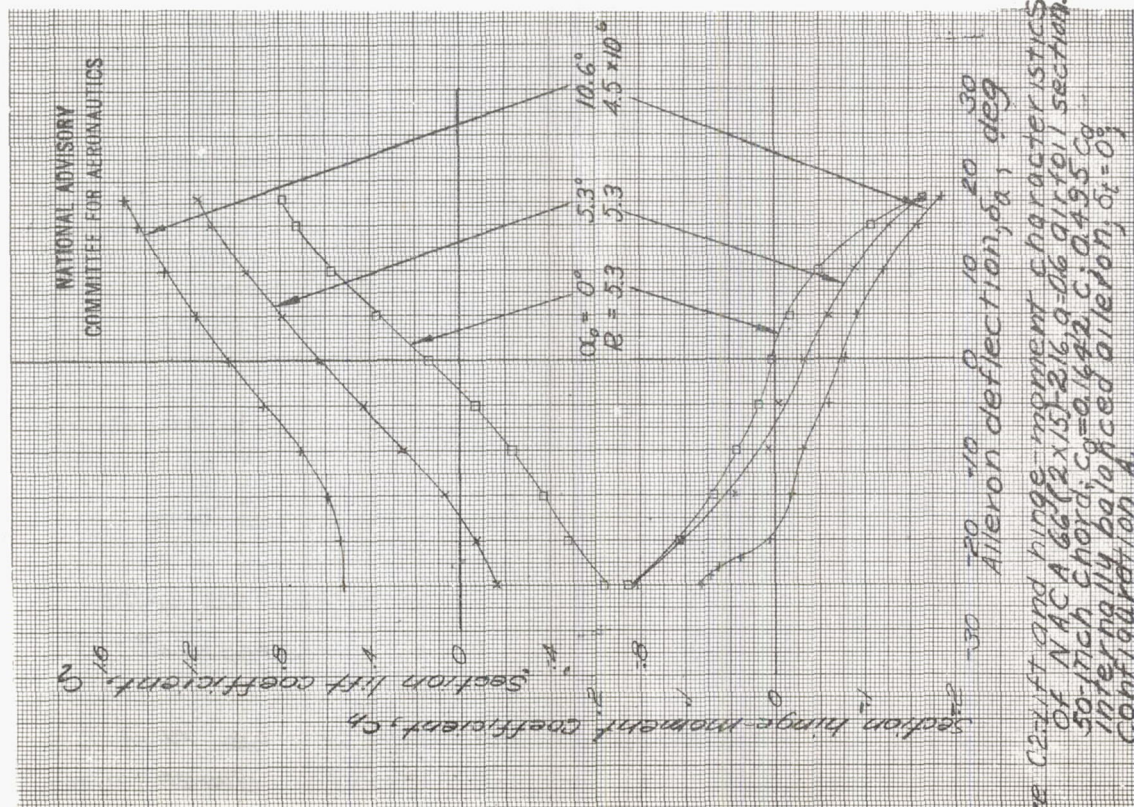 NATIONAL ADVISORY
COMMITTEE FOR AERONAUTICS
Section lift coefficient, Cl
1.6
1.2
.8
.4
0
-.4
-.8
α₀ = 0° 5.3° 10.6°
R = 5.3 5.3 4.5 × 10⁶
Section hinge-moment coefficient, Ch
.2
.1
0
-.1
-.2
-30 -20 -10 0 10 20 30
Aileron deflection, δa, deg
C2.-Lift and hinge-moment characteristics
of NACA 66(2x15)-216, a=0.6 airfoil section.
50-inch chord; ca=0.1642 c; 0.495 ca
internally balanced aileron; δt=0°;
configuration A.